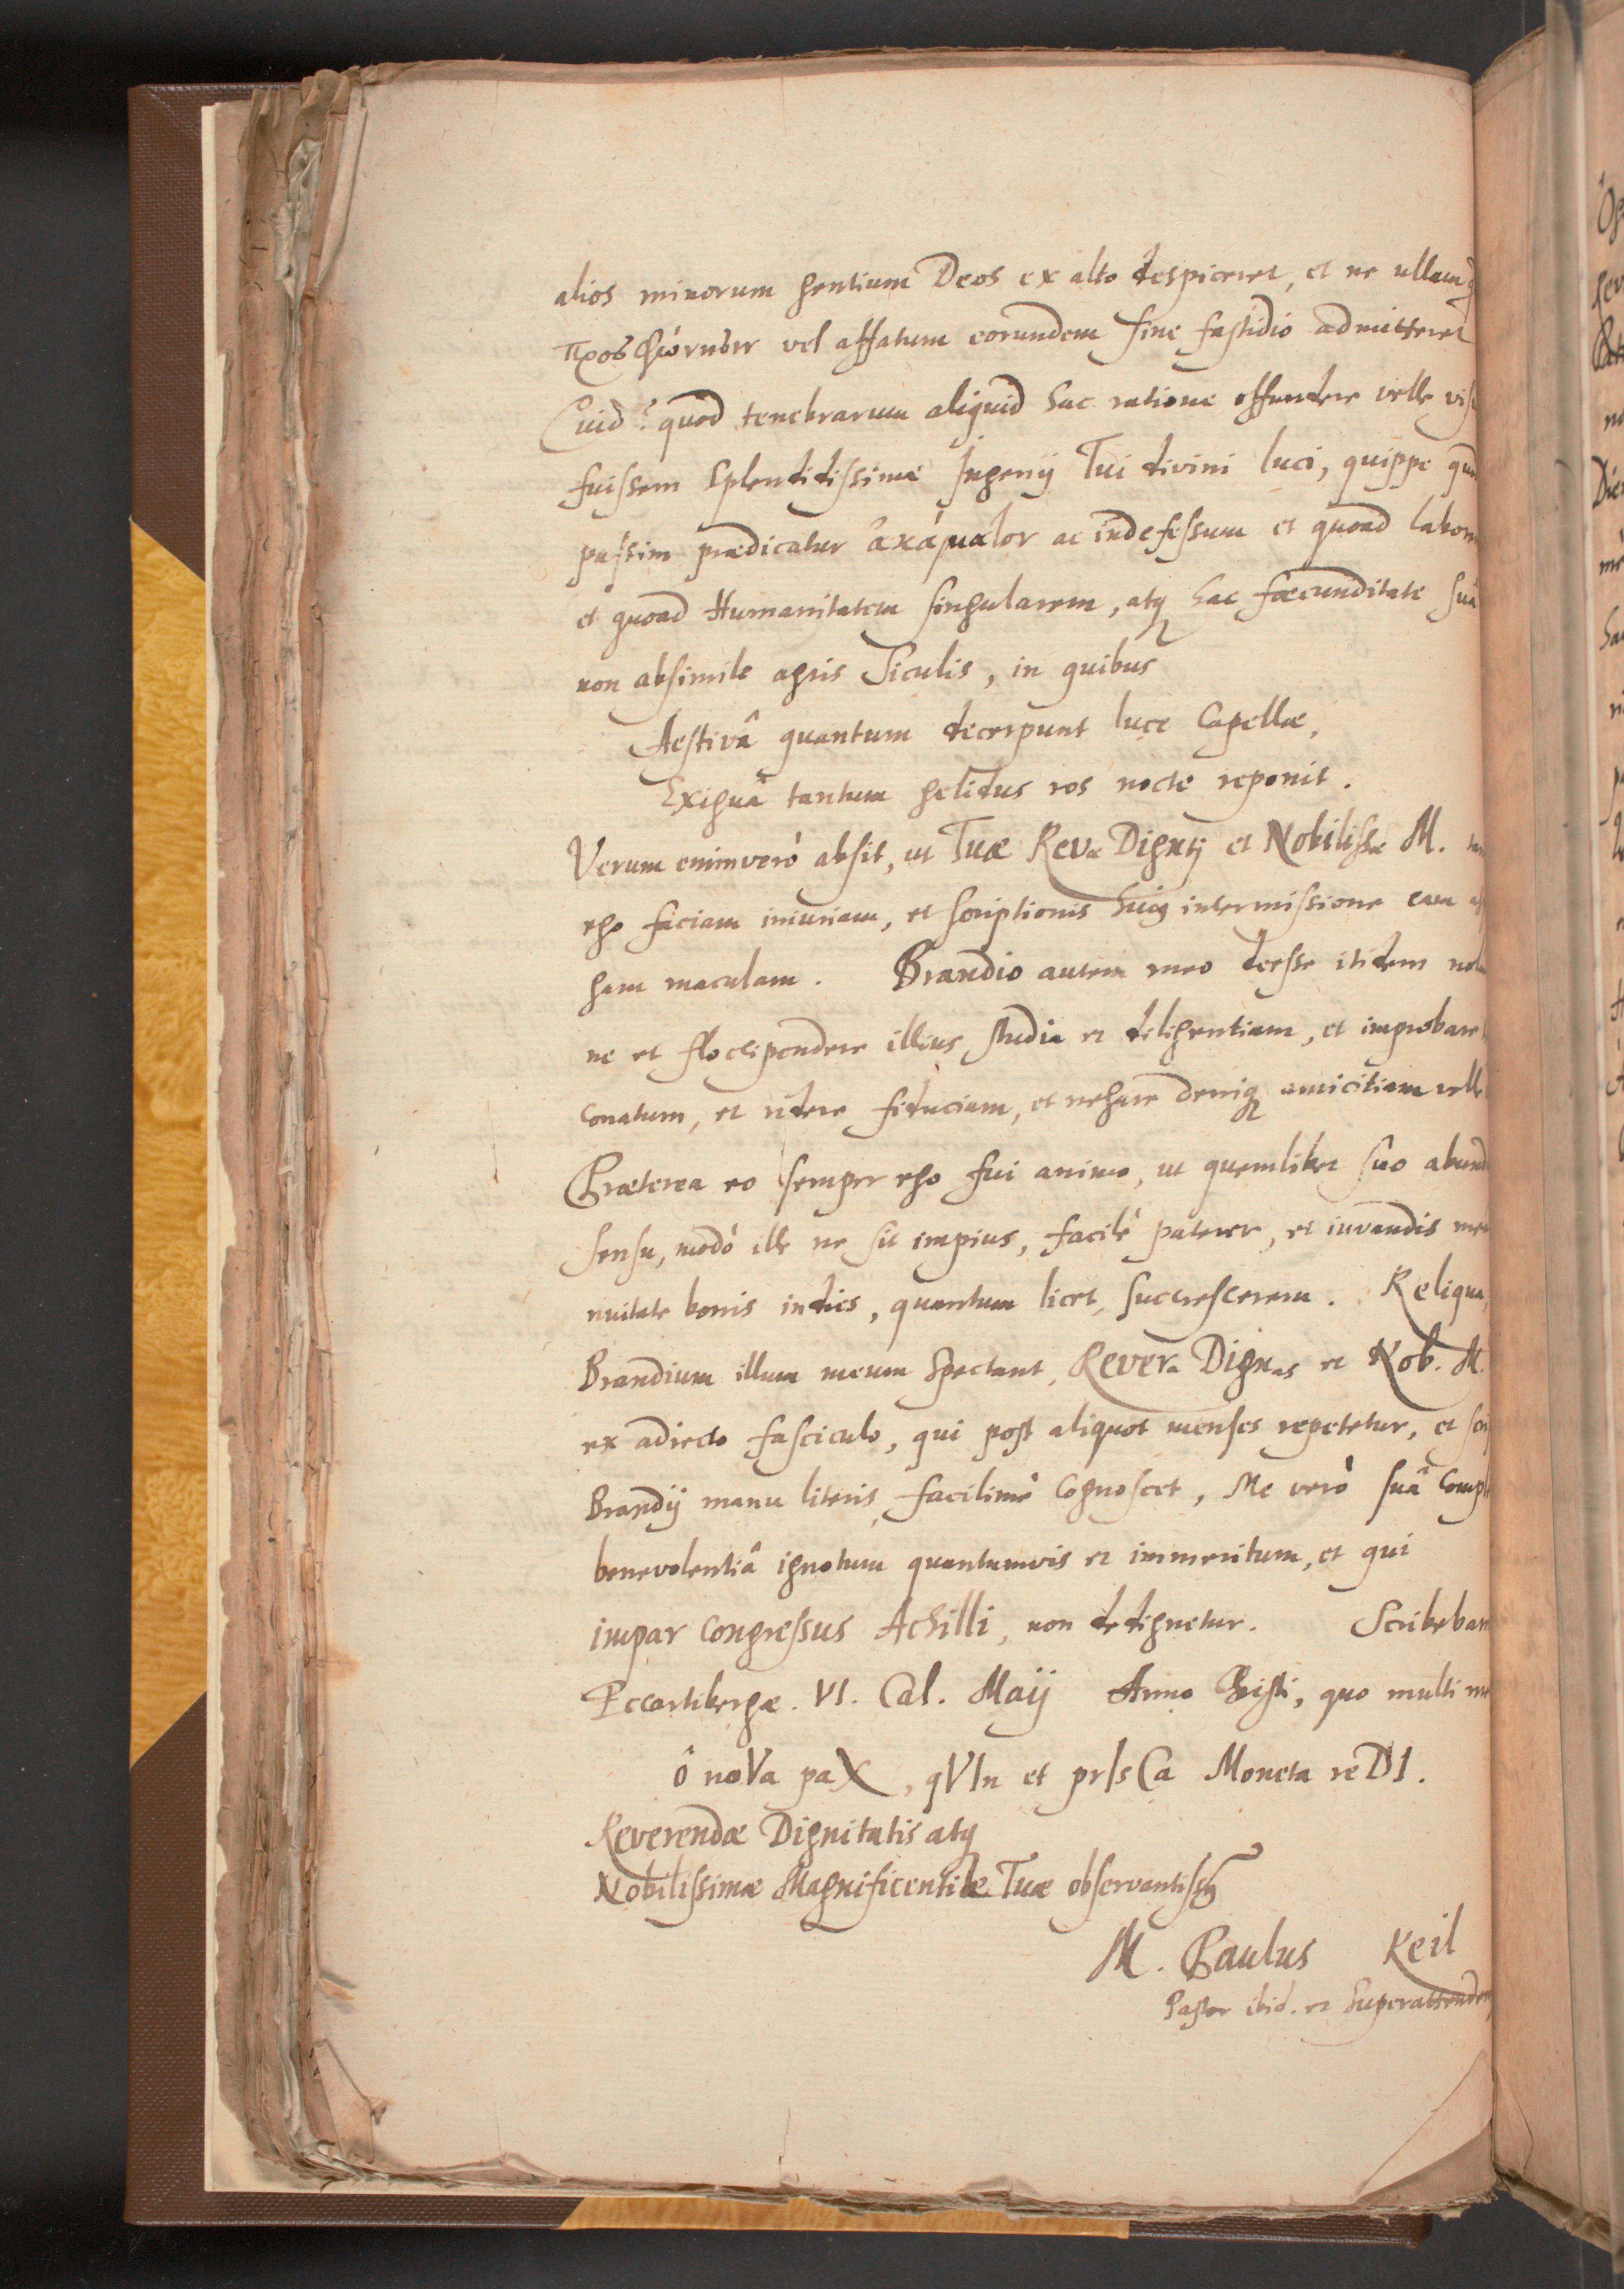 alios minorum gentium Deos ex alto despiceret, et ne ullam
προσφώνησιν vel affatum eorundem sine fastidio admitteret
Quid? quod tenebrarum aliquid hac ratione offundere velle
fuissem splendidissimæ Ingenij Tui divini luci, quippe
passim prædicatur ἀκάματον ac indefessum et quoad
et quoad Humanitatem singularem, atq hac fœcunditate suâ
non absimile agris Siculis, in quibus
Aestivâ quantum decerpunt luce Capellæ,
Exiguâ tantum gelidus ros nocte reponit.
Verum enimverò absit, ut Tuæ Revæ Digntj et Nobilissæ M.
ego faciam iniuriam, et scriptionis huiq intermissione eam
gam maculam. Brandio autem meo deesse itidem
ne et floccipendere illius studia et diligentiam, et improbare
conatum, et ridere fiduciam, et negare deniq amicitiam
Præterea eo semper ego fui animo, ut quemlibet suo
sensu, modò ille ne sit impius, facilè paterer, et iuvandis
nuitate bonis indies, quantum licet, succrescerem. Reliqua,
Brandium illum meum spectant, Revera Dignas et Nob. M.
ex adiecto fasciculo, qui post aliquot menses repetetur, et
Brandij manu literis facilimè cognoscet, Me verò suâ
benevolentiâ ignotum quantumvis et immeritum, et qui
impar congressus Achilli, non dedignetur. Scribebam
Eccartibergæ. VI. Cal. Maij Anno Christi, quo multi
ô noVa paX, qVIn et prIsCa Moneta reDI.
Reverendæ Dignitatis atq
Nobilissimæ Magnificentiæ Tuæ observantissq
M. Paulus Keil
Pastor ibid. et Superattendens